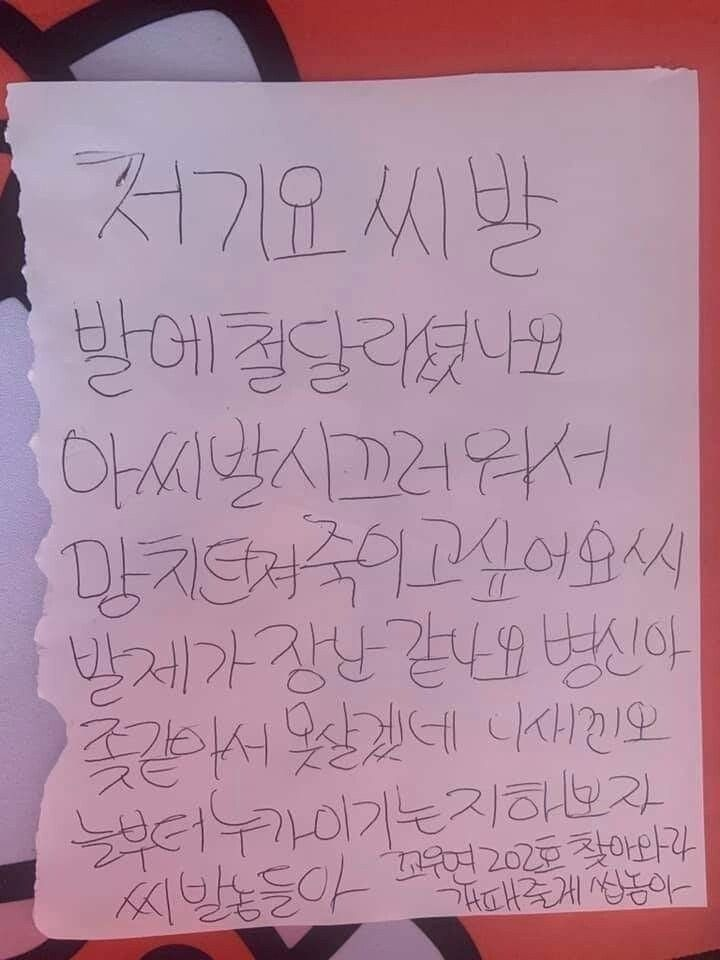 저기요 씨발
발에 철달라셨나요
아 씨발 시끄러워서
망치 던져 죽이고 싶어요 씨
발 제가 장난 같나요 병신아
좆같아서 못살겠네 니새낀 오
늘부터 누가 이기는지 해보자
씨발놈들아
202호 찾아와라
개패줄게 씹놈아